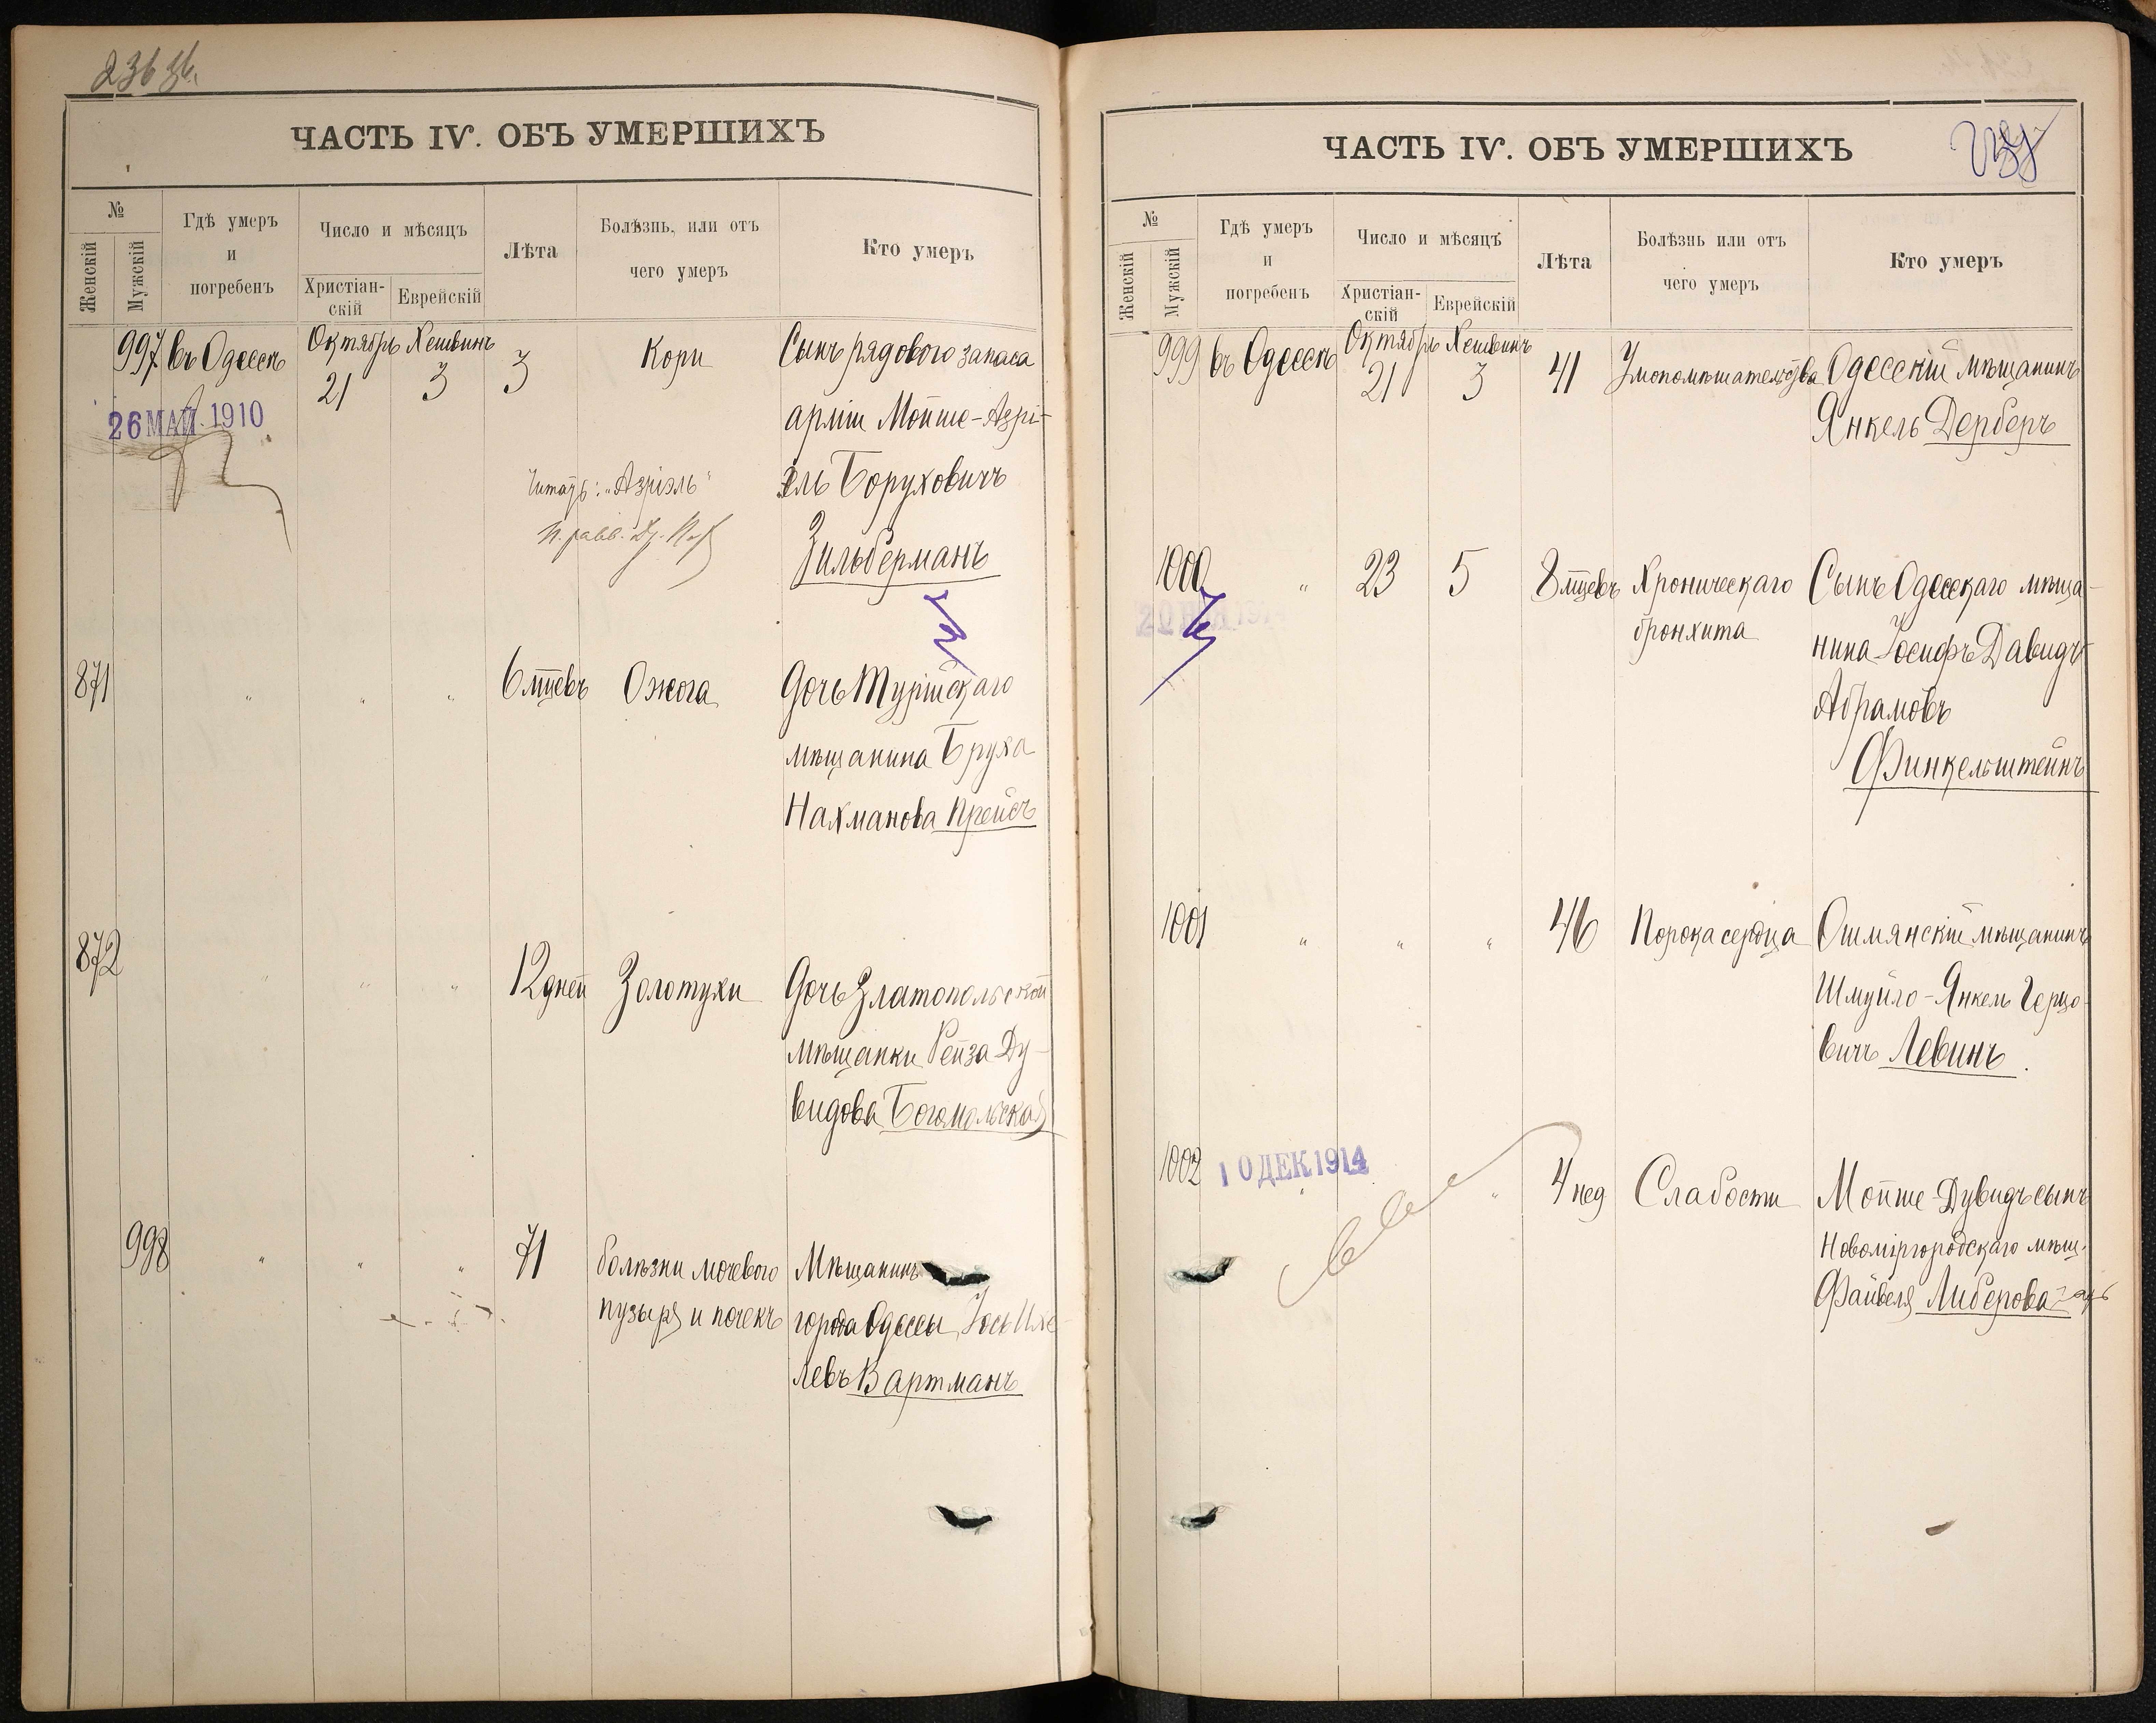 236 зв.
ЧАСТЬ IV. ОБЪ УМЕРШИХЪ
№
Женскій
Мужскій
Гдѣ умеръ
и
погребенъ
Число и мѣсяцъ
Христіан-
скій
Еврейскій
Лѣта
Болѣзнь, или отъ
чего умеръ
Кто умеръ
997 въ Одессѣ Октябрь 21 Хешвинъ 3 3 Кори Сынъ рядового запаса
26 МАЙ 1910
арміи Мойше-Азрі-
эль Боруховичъ
Читать: "Азріэль"
Зильберманъ
871 " " " 6 мцевъ Ожога Дочь Турійскаго
мѣщанина Бруха
Нахманова Прейсъ
872 " " " 12 дней Золотухи Дочь Златопольской
мѣщанки Рейза Ду-
видова Богомольская
998 " " " 71 болѣзни мочевого Мѣщанинъ
пузыря и почекъ города Одессы Іось Ихе-
левъ Вартманъ
ЧАСТЬ IV. ОБЪ УМЕРШИХЪ
№
Женскій
Мужскій
Гдѣ умеръ
и
погребенъ
Число и мѣсяцъ
Христіан-
скій
Еврейскій
Лѣта
Болѣзнь или отъ
чего умеръ
Кто умеръ
999 въ Одессѣ Октябрь 21 Хешвинъ 3 41 Умопомѣшательства Одесскій мѣщанинъ
Янкель Дерберъ
1000 " 23 5 8 мцевъ Хроническаго Сынъ Одесскаго мѣща-
бронхита нина Іосифъ Давидъ
Абрамовъ
Финкельштейнъ
1001 " " " 46 Порока сердца Ошмянскій мѣщанинъ
Шмуйло-Янкель Герцо-
вичъ Левинъ.
1002 10 ДЕК 1914 " " 4 нед Слабости Мойше-Дувидъ сынъ
Новоміргородскаго мѣщ.
Файвеля Либерова